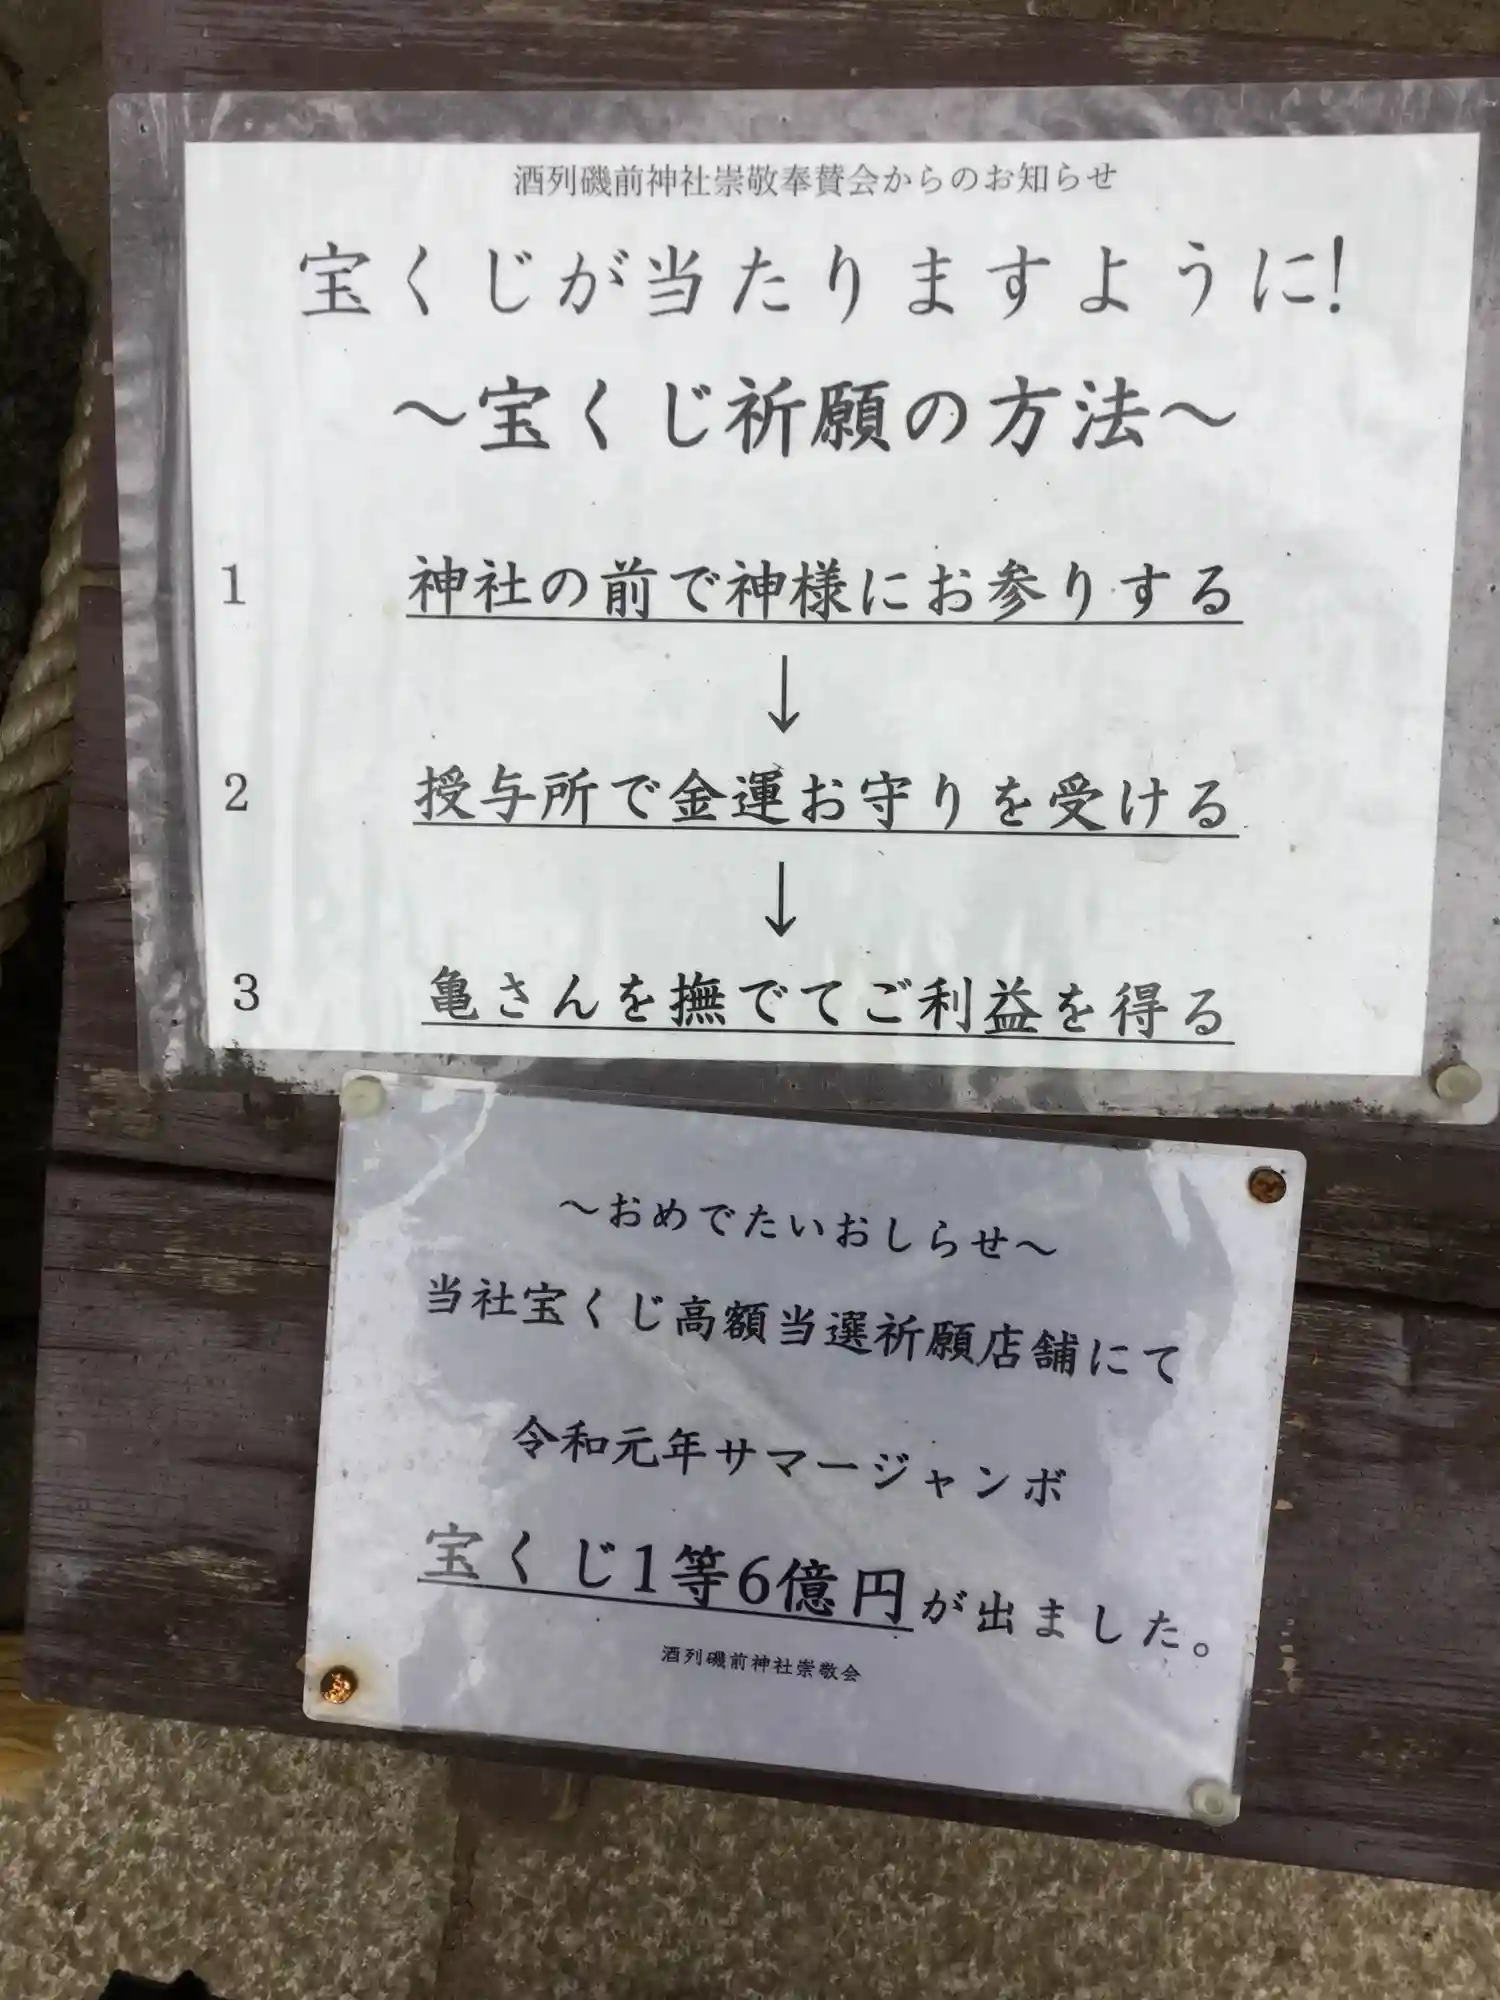 酒列磯前神社崇敬奉賛会からのお知らせ
宝くじが当たりますように!
～宝くじ祈願の方法～
1 神社の前で神様にお参りする
↓
2 授与所で金運お守りを受ける
↓
3 亀さんを撫でてご利益を得る
～おめでたいおしらせ～
当社宝くじ高額当選祈願店舗にて
令和元年サマージャンボ
宝くじ1等6億円が出ました。
酒列磯前神社崇敬会